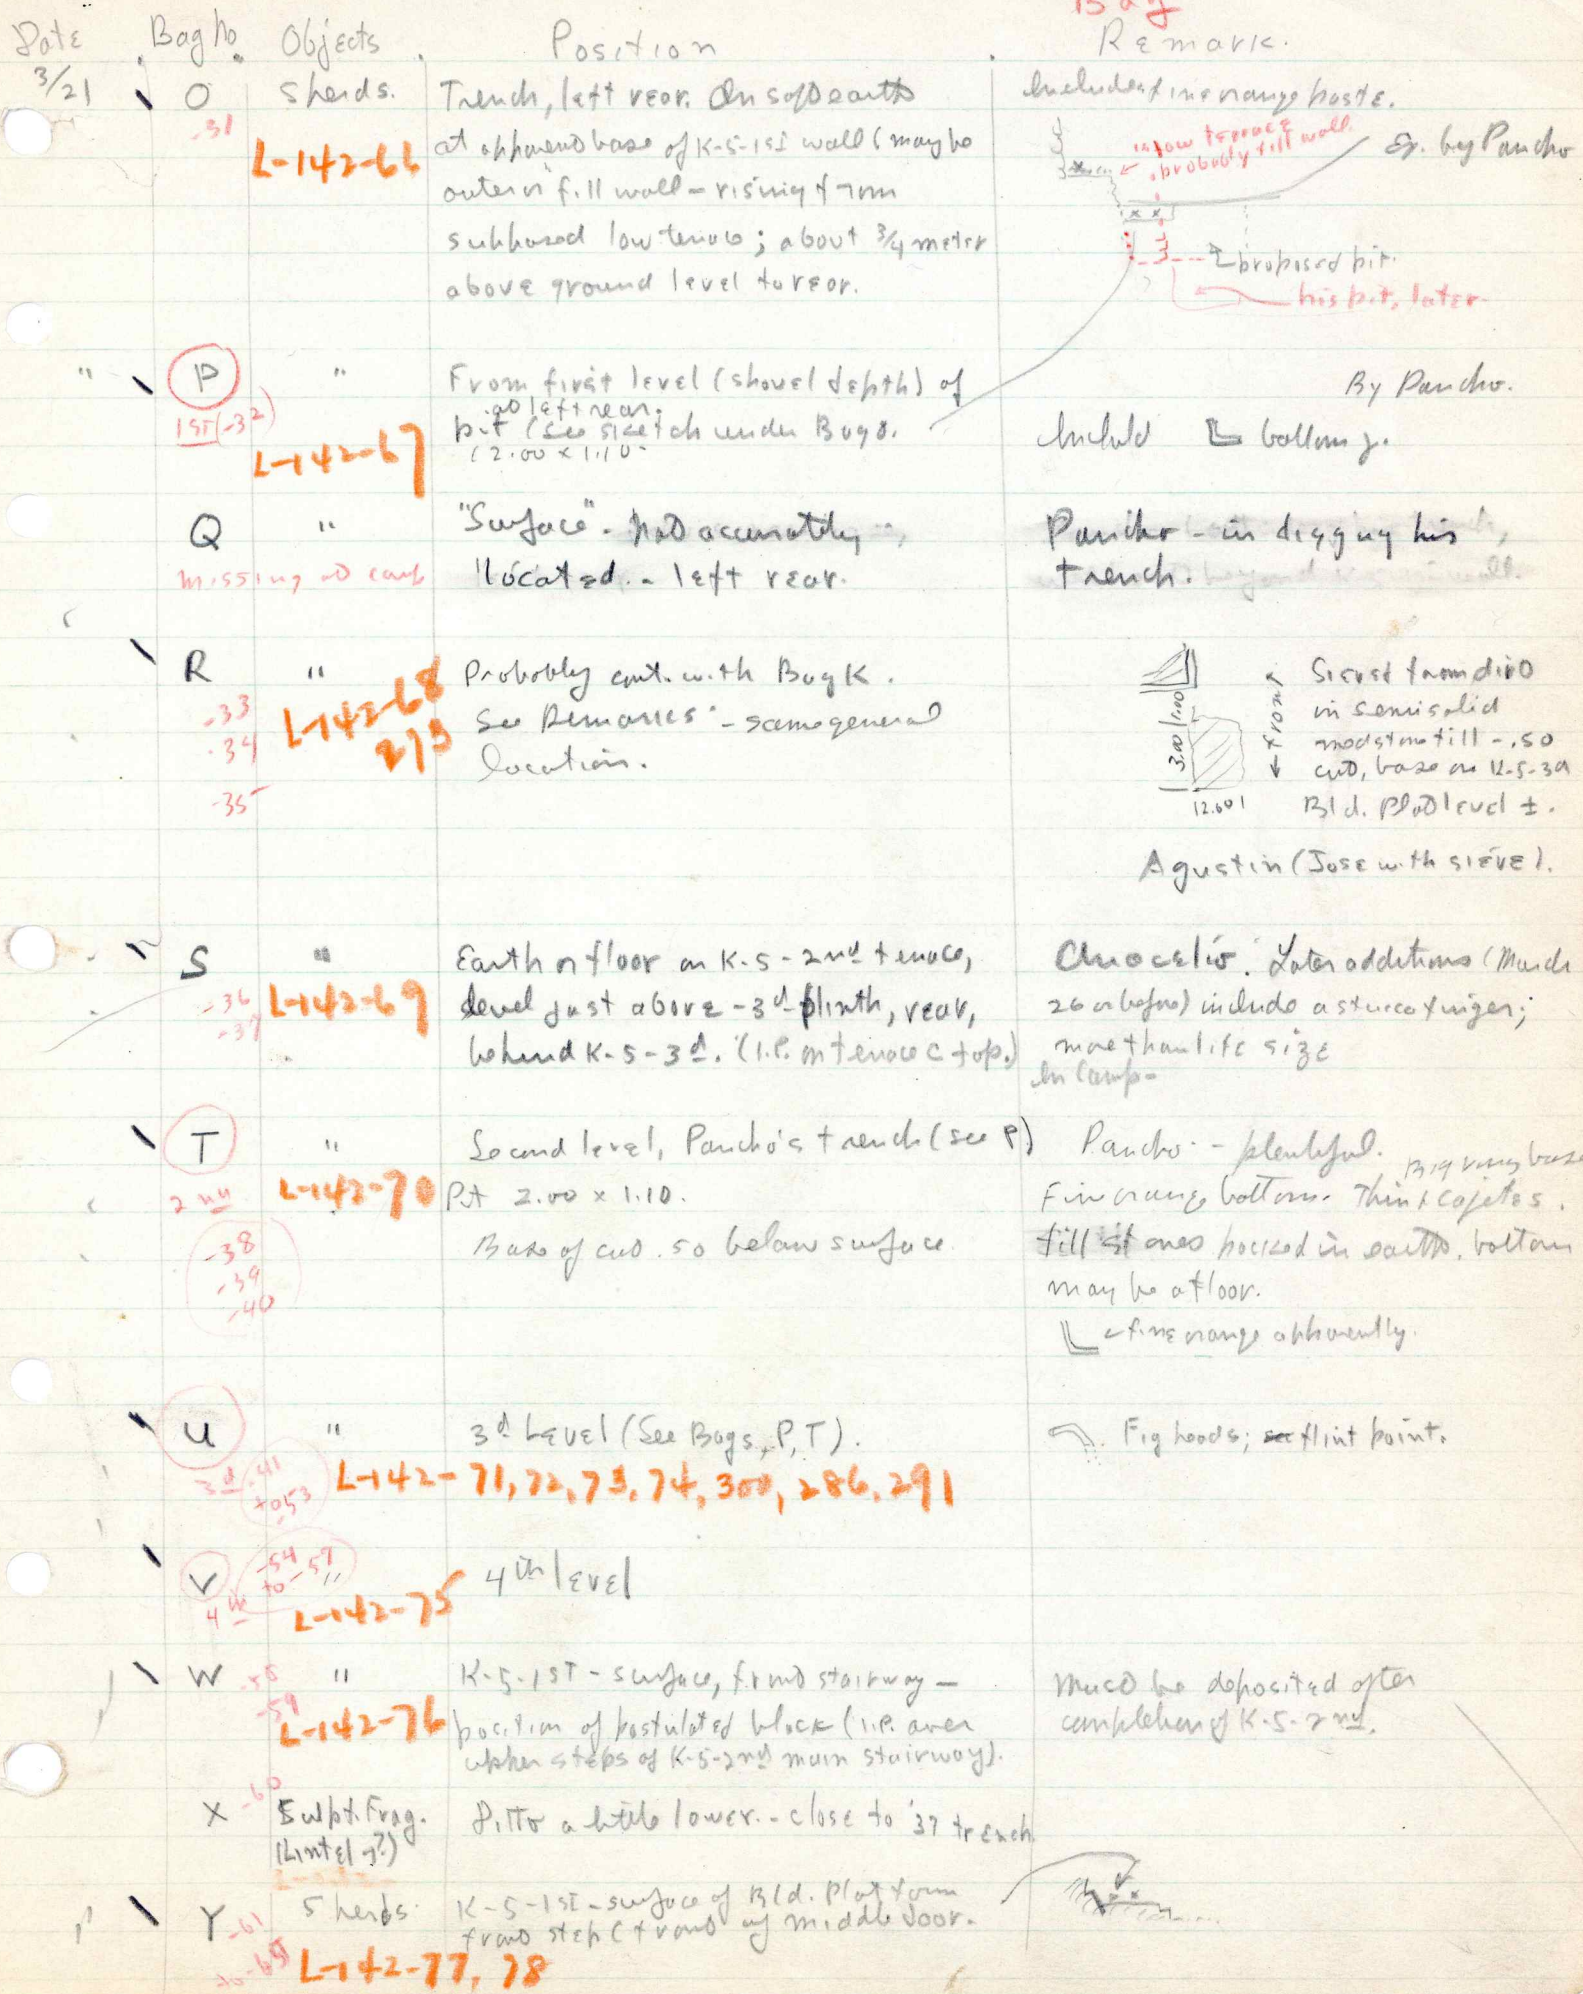 Bag
Date Bag No. Objects Position Remark.
3/21 O sherds. Trench, left rear. On soft earth
at apparent base of K-5-1st wall (may be
outer or fill wall - rising from
supposed low terrace; about 3/4 meter
above ground level to rear.
-31
L-142-66
Includes fine orange paste.
is low terrace
probably fill wall.
Ex. by Pancho
proposed pit.
his pit, later.
" P " From first level (shovel depth) of
at left rear.
pit (see sketch under Bag O.
(2.00 x 1.10.
1st (-32)
L-142-67
By Pancho.
Include bottom
Q " "Surface". Not accurately
located. - left rear.
missing at camp
Pancho - in digging his
trench.
R " Probably cont. with Bag K.
See Remarks - same general
location.
-33
-34
-35
L-142-68
273
1.00
3.00
12.60
← Front →
Sieved from dirt
in semisolid
mudstone fill - .50
cut, base on K-5-3d
Bld. Plat level ±.
Agustin (Jose with sieve).
S " Earth on floor on K-5-2nd terrace,
level just above -3d plinth, rear,
behind K-5-3d. (I.P. on terrace top.)
-36
-37
L-142-69
Later additions (March
26 or before) include a stucco finger;
more than life size
In Camp-
T " Second level, Pancho's trench (see P)
Pit 2.00 x 1.10.
Base of cut .50 below surface
2nd
-38
-39
-40
L-142-70
Pancho - plentiful.
Big ring base
Fine orange bottom. Thin cajetes.
fill stones packed in earth. bottom
may be a floor.
← fine orange apparently.
U " 3d Level (See Bags, P, T).
3d -41
to 53
L-142-71, 72, 73, 74, 300, 286, 291
Fig heads; flint point.
V " 4th level
4th
-54
to -57
L-142-75
W " K-5-1st - surface, front stairway -
position of postulated block (I.P. over
upper steps of K-5-2nd main stairway).
-59
L-142-76
Must be deposited after
completion of K-5-2nd.
X Sculpt. Frag. Ditto a little lower. - close to '37 trench
(Lintel ?)
-60
Y sherds. K-5-1st - surface of Bld. Platform
front step (front of middle door.
-61
L-142-77, 78